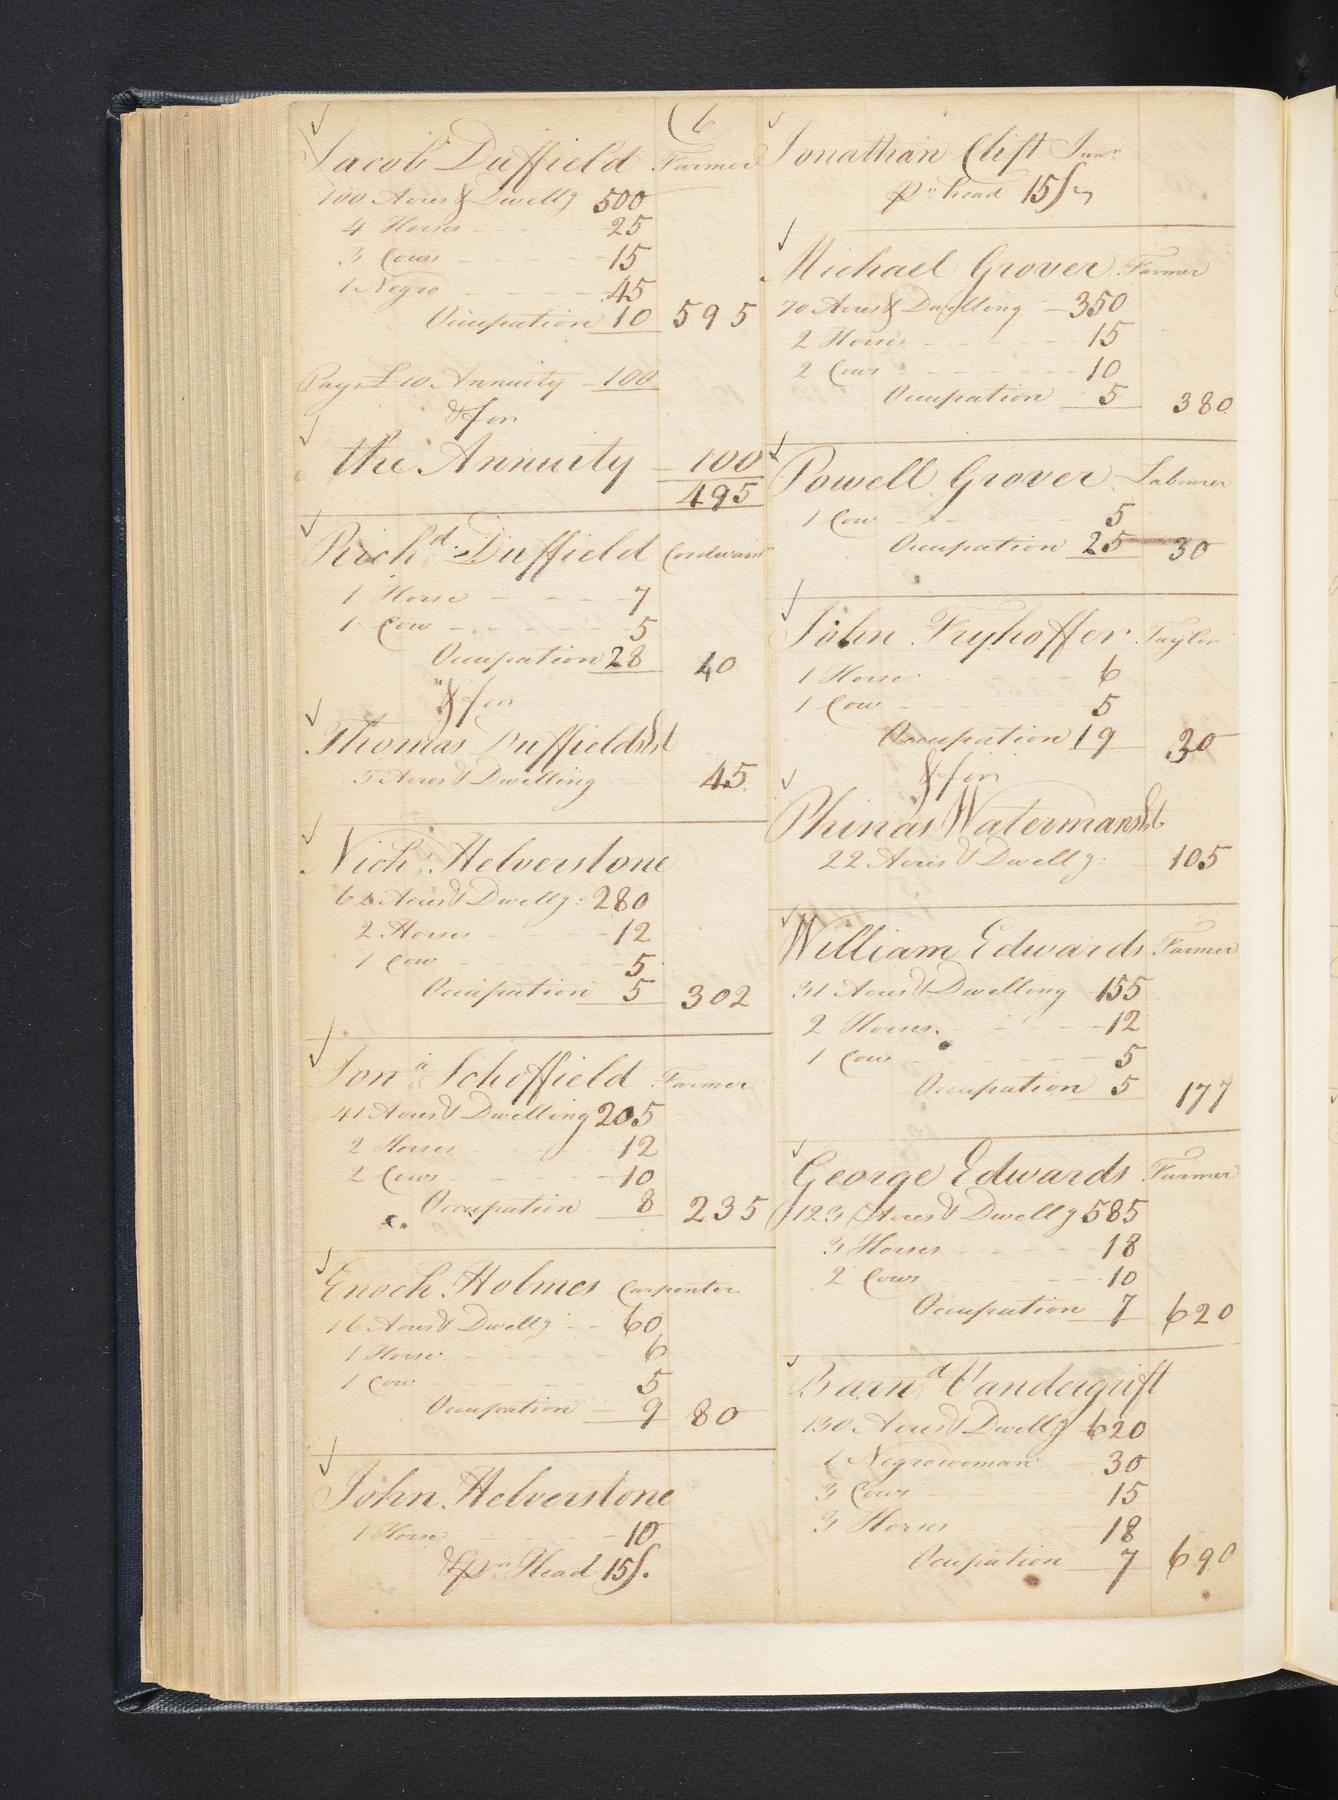 (6
Jacob Duffield Farmer
100 Acres & Dwellg 500
4 Horses 25
3 Cows 15
1 Negro 45
Occupation 10 595
Pays £10 Annuity 100
& for
the Annuity 100
495
Richd. Duffield Cordwainr
1 Horse 7
1 Cow 5
Occupation 28 40
& for
Thomas Duffields Est
5 Acres & Dwelling 45
Nich. Helverstone
62 Acres & Dwellg: 280
2 Horses 12
1 Cow 5
Occupation 5 302
Jona. Schoffield Farmer
41 Acres & Dwelling 205
2 Horses 12
2 Cows 10
Occupation 8 235
Enoch Holmes Carpenter
16 Acres & Dwellg 60
1 Horse 6
1 Cow 5
Occupation 9 80
John Helverstone
1 Horse 10
& pr. Head 15/.
Jonathan Clift Junr
pr head 15/
Michael Grover Farmer
70 Acres & Dwelling 350
2 Horses 15
2 Cows 10
Occupation 5 380
Powell Grover Labourer
1 Cow 5
Occupation 25 30
John Fryhoffer Taylor
1 Horse 6
1 Cow 5
Occupation 19 30
& for
Phinas Watermans Est
22 Acres & Dwellg: 105
William Edwards Farmer
31 Acres & Dwelling 155
2 Horses 12
1 Cow 5
Occupation 5 177
George Edwards Farmer
123 Acres & Dwellg 585
3 Horses 18
2 Cows 10
Occupation 7 620
Barnd Vandegrift
130 Acres & Dwellg 620
1 Negrowoman 30
3 Cows 15
3 Horses 18
Ocupation 7 690